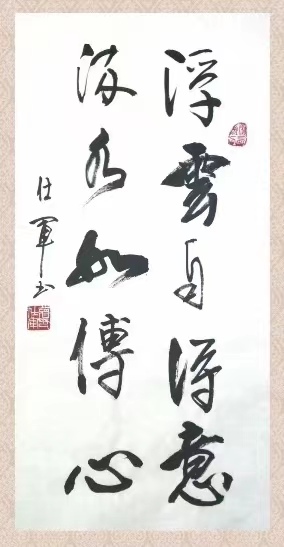 浮雲自得意
流水如傳心
仕軍书